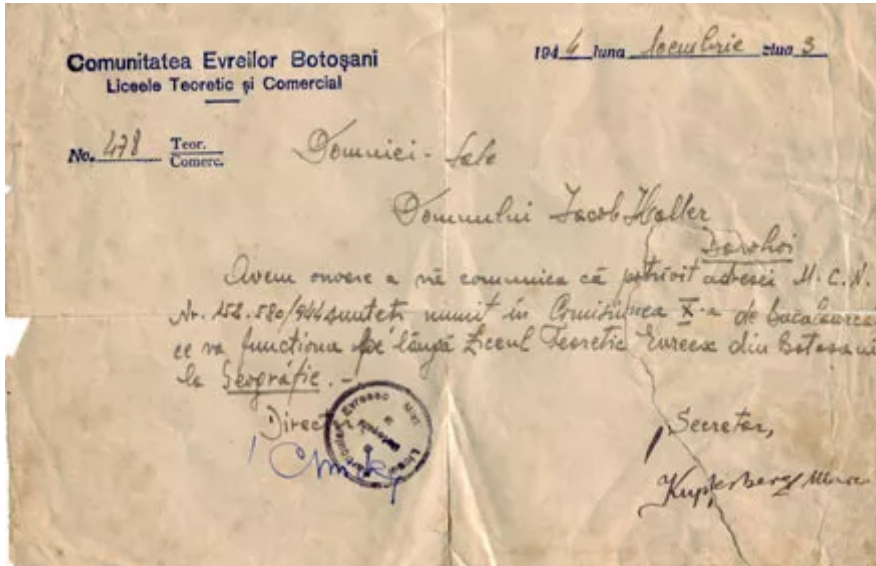 Comunitatea Evreilor Botoşani
Liceele Teoretic şi Comercial
1944 luna Noembrie ziua 3
No. 478 Teor.
Comerc.
Domniei-Sale
Domnului Jacob Haller
Dorohoi
Avem onoare a vă comunica că potrivit adresei M.C.N.
Nr. 152.580/944 sunteti numit in Comisiunea X-a de bacalaureat
ce va functiona pe lângă Liceul Teoretic Evreesc din Botoşani
la Geografie.-
Director
Secretar,
Kupferberg